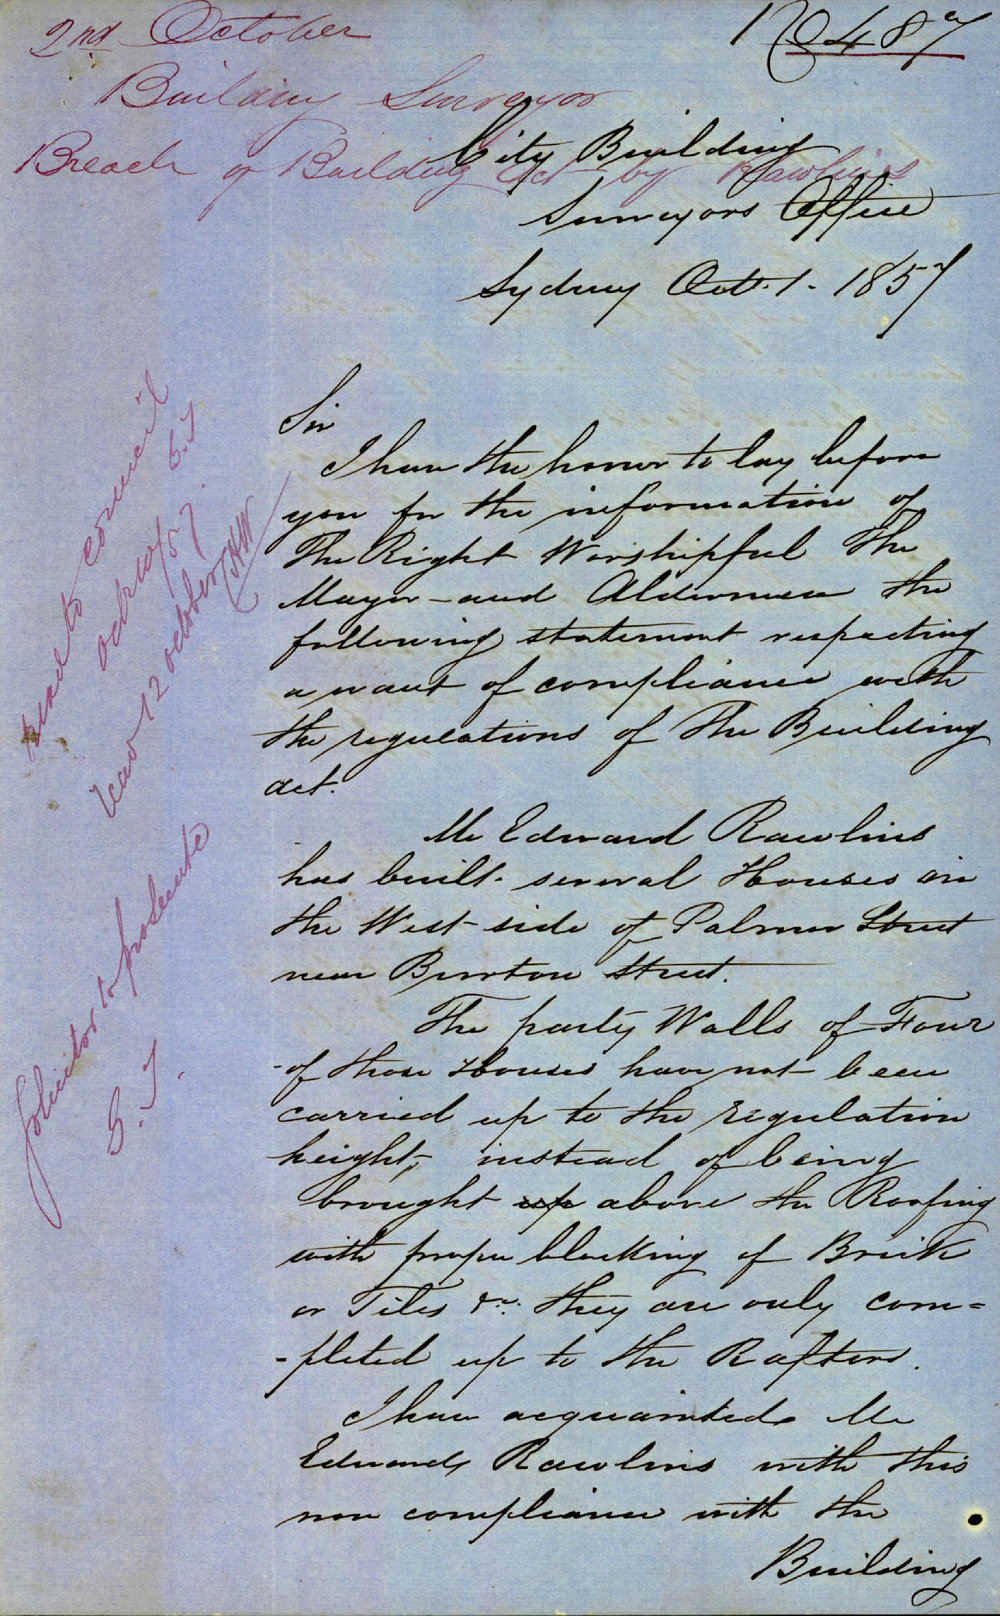 2nd October
No 487
Building Surveyor
Breach of Building Act by Rawlins
City Building
Surveyors Office
Sydney Oct. 1. 1857
Sir
I have the honor to lay before
you for the information of
The Right Worshipful The
Mayor and Aldermen the
following statement respecting
a want of compliance with
the regulations of The Building
Act.
Mr Edward Rawlins
has built several Houses on
the West side of Palmer Street
near Burton Street.
The party Walls of Four
of these Houses have not been
carried up to the regulation
height, instead of being
brought up above the Roofing
with proper blocking of Brick
or Tiles &c. they are only com=
-pleted up to the Rafters.
I have acquainted Mr
Edward Rawlins with this
non compliance with the
Building
Read to Council
October 5/57
S.J
12 October
Solicitor to prosecute
S.J.